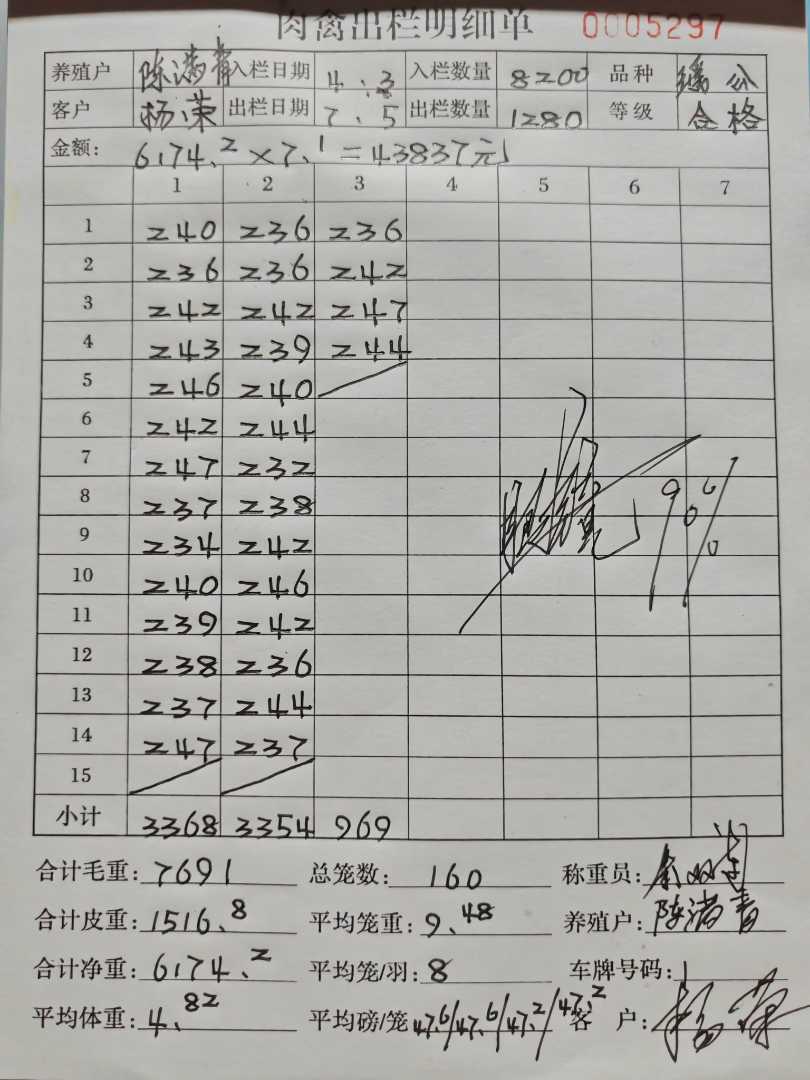 肉禽出栏明细单 0005297
养殖户 陈满青 入栏日期 4.3 入栏数量 8200 品种
客户 杨荣 出栏日期 7.5 出栏数量 1280 等级 合格
金额: 6174.2×7.1=43837元
1 2 3 4 5 6 7
1 240 236 236
2 236 236 242
3 242 242 247
4 243 239 244
5 246 240
6 242 244
7 247 232
8 237 238
9 234 242
10 240 246
11 239 242
12 238 236
13 237 244
14 247 237
15
小计 3368 3354 969
合计毛重: 7691 总笼数: 160 称重员:
合计皮重: 1516.8 平均笼重: 9.48 养殖户: 陈满青
合计净重: 6174.2 平均笼/羽: 8 车牌号码:
平均体重: 4.82 平均磅/笼 47.6/47.6/47.2/47.2 客户: 杨荣